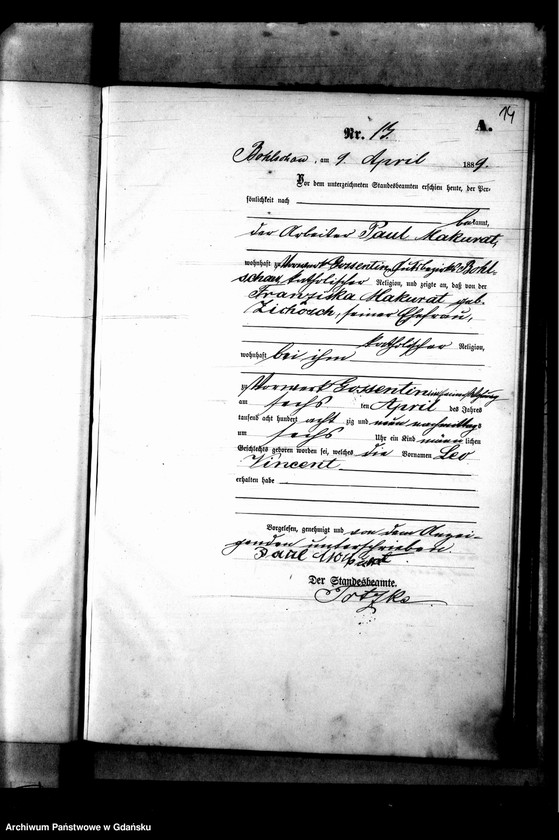 14
Nr. 13.
A.
Bohlschau, am 9. April 1889.
Vor dem unterzeichneten Standesbeamten erschien heute, der Per-
sönlichkeit nach
bekannt,
der Arbeiter Paul Makurat,
wohnhaft zu Vorwerk Gossentin, Gutsbezirks Bohl-
schau, katholischer Religion, und zeigte an, daß von der
Franziska Makurat geb.
seiner Ehefrau,
katholischer Religion,
wohnhaft bei ihm
zu Vorwerk Gossentin in seiner Wohnung
am sechs ten April des Jahres
tausend acht hundert acht zig und neun nachmittags
um sechs Uhr ein Kind männlichen
Geschlechts geboren worden sei, welches die Vornamen Leo
Vincent
erhalten habe
Vorgelesen, genehmigt und von dem Anzei-
genden unterschrieben.
Paul Makurat
Der Standesbeamte.
Archiwum Państwowe w Gdańsku